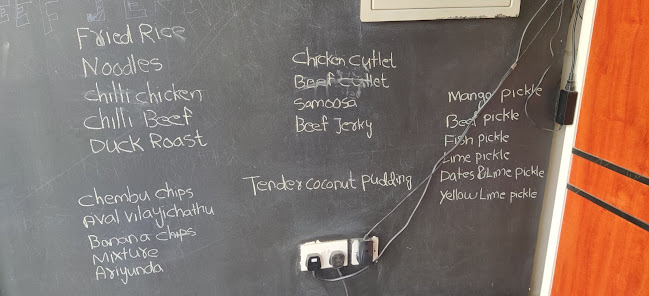 Fried Rice
Noodles
chilli chicken
chilli Beef
Duck Roast
Chicken cutlet
Beef cutlet
samoosa
Beef Jerky
Mango pickle
Beef pickle
Fish pickle
Lime pickle
Dates & Lime pickle
Yellow Lime pickle
Tender coconut pudding
Chembu chips
Aval vilayichathu
Banana chips
Mixture
Ariyunda